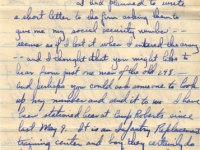 I had planned to write
a short letter to the firm asking them to
give me my social security number --
seems as if I lost it when I entered the army
-- and I thought that you might like to
hear from just one man of the old 278.
And perhaps you could ask someone to look
up my number and send it to me. I have
been stationed here at Camp Roberts since
last May 9. It is an Infantry Replacement
training center and boy they certainly do